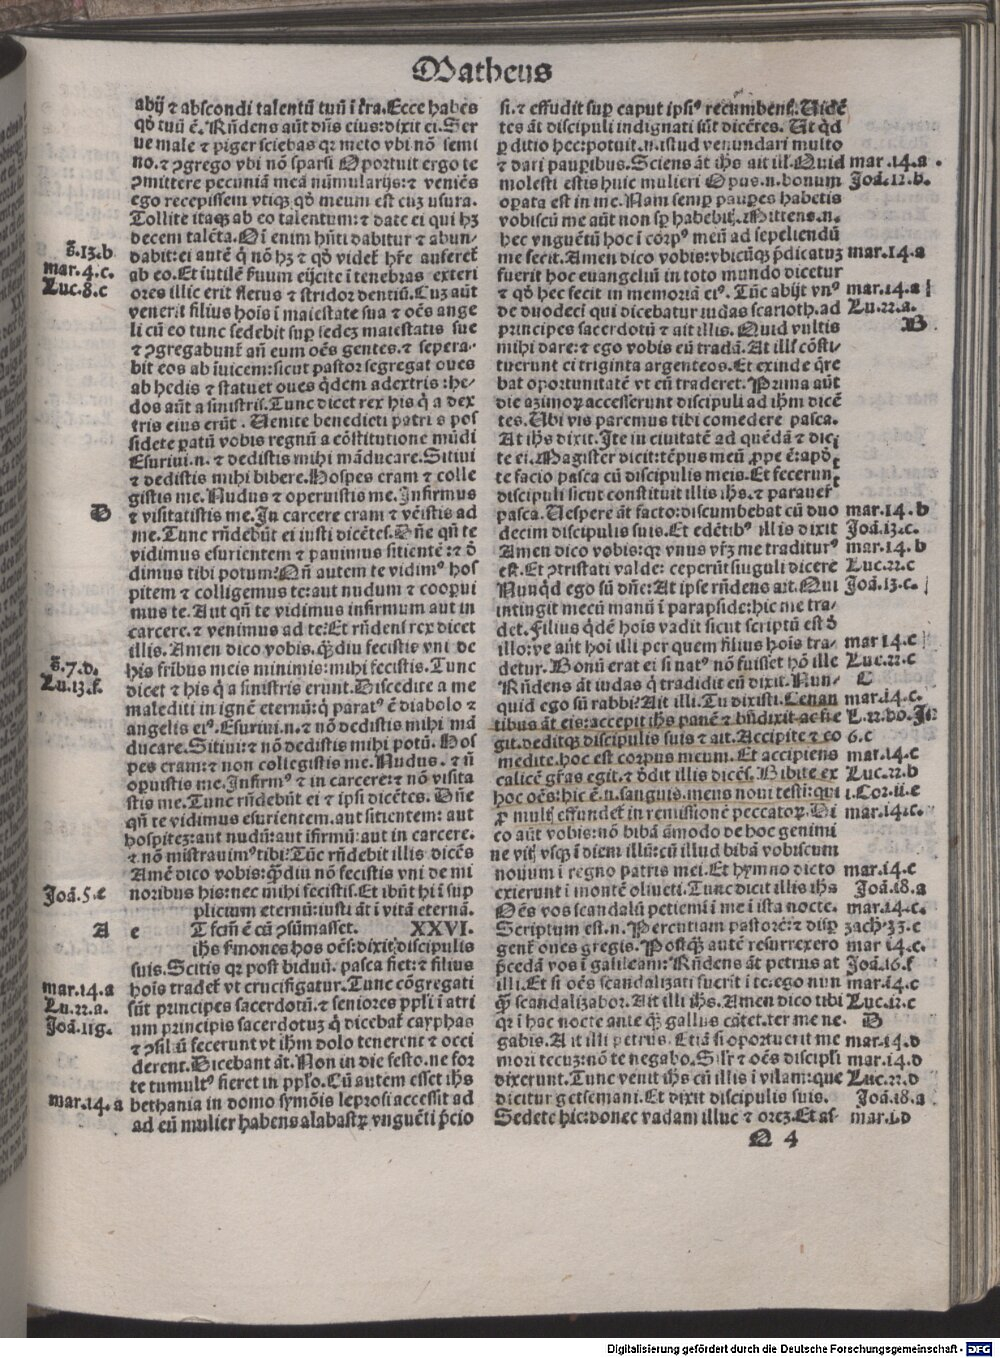 Matheus
abij ⁊ abscondi talentū tuū ī t̄ra. Ecce habes
qđ tuū ē. Rñdens aūt dñs eius: dixit ei. Ser
ue male ⁊ piger sciebas qꝛ meto vbi nō semi
no. ⁊ ꝯgrego vbi nō sparsi Oportuit ergo te
ꝯmittere pecuniā meā nūmularijs: ⁊ veniēs
ego recepissem vtiqꝫ qđ meum est cuꝫ vsura.
Tollite itaqꝫ ab eo talentum: ⁊ date ei qui hꝫ
decem talēta. Oī enim hñti dabitur ⁊ abun-
dabit: ei autē q̄ nō hꝫ ⁊ qđ videt̄ hr̄e auferet̄
ab eo. Et iutilē s̄uum eijcite ī tenebras exteri
ores illic erit fletus ⁊ stridor dentiū. Cuꝫ aūt
venerit filius hoīs ī maiestate sua ⁊ oēs ange
li cū eo tunc sedebit suꝑ sedeꝫ maiestatis sue
⁊ ꝯgregabunt̄ añ eum oēs gentes. ⁊ sepera-
bit eos ab īuicem: sicut pastor segregat oues
ab hedis ⁊ statuet oues q̄dem adextris: he-
dos aūt a sinistris. Tunc dicet rex his q̄ a dex
tris eius erūt. Uenite benedicti patris pos
sidete ꝑatū vobis regnū a cōstitutione mūdi
Esuriui. n. ⁊ dedistis mihi māducare. Sitiui
⁊ dedistis mihi bibere. Hospes eram ⁊ colle
gistis me. Nudus ⁊ operuistis me. Infirmus
⁊ visitatistis me. In carcere eram ⁊ vēistis ad
me. Tunc rñdebūt ei iusti dicētes. Dñe qñ te
vidimus esurientem ⁊ pauimus sitientē: ⁊ đ
dimus tibi potum? Qñ autem te vidimꝰ hos
pitem ⁊ colligemus te: aut nudum ⁊ cooꝑui
mus te. Aut qñ te vidimus infirmum aut in
carcere. ⁊ venimus ad te? Et rñdens rex dicet
illis. Amen dico vobis. qᷓdiu fecistis vni de
his fr̄ibus meis minimis: mihi fecistis. Tunc
dicet ⁊ his q̄ a sinistris erunt. Discedite a me
malediti in ignē eternū: q̄ paratꝰ ē diabolo ⁊
angelis eiꝰ. Esuriui. n. ⁊ nō dedistis mihi mā
ducare. Sitiui: ⁊ nō dedistis mihi potū. Hos
pes eram: ⁊ non collegistis me. Nudus. ⁊ nō
oꝑuistis me. Infirmꝰ ⁊ in carcere: ⁊ nō visita
stis me. Tunc rñdebūt ei ⁊ ipsi dicētes. Dñe
qñ te vidimus esurientem. aut sitientem: aut
hospiteꝫ: aut nudū: aut īfirmū: aut in carcere.
⁊ nō mīstrauimꝰ tibi? Tūc rñdebit illis dicēs
Amē dico vobis: qᷓdiu nō fecistis vni de mi
noribus his: nec mihi fecistis. Et ibūt hi ī sup
plicium eternū: iusti āt ī vitā eternā.
e T fcm̄ ē cū ꝯsūmasset. XXVI.
ihs s̄mones hos oēs: dixit discipulis
suis. Scitis qꝛ post biduū. pasca fiet: ⁊ filius
hoīs tradet̄ vt crucifigatur. Tunc cōgregati
sūt principes sacerdotū. ⁊ seniores ppl'i ī atri
um principis sacerdotuꝫ q̄ dicebat̄ cayphas
⁊ ꝯsiliū fecerunt vt ihm̄ dolo tenerent ⁊ occi
derent. Dicebant āt. Non in die festo. ne for
te tumultꝰ fieret in pplo. Cū autem esset ihs
bethania in domo symōis leprosi accessit ad
ad eū mulier habens alabastꝝ vnguēti p̄cio
s̄.13.b
mar.4.c.
Luc.8.c
D
s̄.7.d.
Lu.13.f.
Joā.5.e
A
mar.14.a
Lu.22.a.
Joā.11g.
mar.14.a
si. ⁊ effudit suꝑ caput ipsiꝰ recumbentꝭ. Uidē
tes āt discipuli indignati sūt dicētes. Ut qd̄
ꝑditio hec: potuit. n. istud venundari multo
⁊ dari pauꝑibus. Sciens āt ihs ait ill'. Quid
molesti estis huic mulieri Opus. n. bonum
oꝑata est in me. Nam semꝑ pauꝑes habetis
vobiscū me aūt non sꝑ habebitꝭ. Mittens. n.
hec vnguētū hoc ī corpꝰ meū ad sepeliendū
me fecit. Amen dico vobis: vbicūqꝫ p̄dicatuꝫ
fuerit hoc euangeliū in toto mundo dicetur
⁊ qđ hec fecit in memoriā eiꝰ. Tūc abijt vnꝰ
de duodeci qui dicebatur iudas scarioth. ad
principes sacerdotū ⁊ ait illis. Quid vultis
mihi dare: ⁊ ego vobis eū tradā. At ill'i cōsti-
tuerunt ei triginta argenteos. Et exinde q̄re
bat oportunitatē vt eū traderet. Prima aūt
die azimoꝝ accesserunt discipuli ad ihm̄ dicē
tes. Ubi vis paremus tibi comedere pasca.
At ihs dixit. Ite in ciuitatē ad quēdā ⁊ dici
te ei. Magister dicit: tēpus meū ꝓpe ē: apđ
te facio pasca cū discipulis meis. Et fecerunt
discipuli sicut constituit illis ihs. ⁊ parauer̄t
pasca. Uespere āt facto: discumbebat cū duo
decim discipulis suis. Et edētibꝰ illis dixit
Amen dico vobis: qꝛ vnus vr̄ꝫ me traditurꝰ
est. Et ꝯtristati valde: ceperūt siuguli dicere
Nunqd̄ ego sū dñe: At ipse rñdens ait. Qui
intingit mecū manū ī parapside: hic me tra-
det. Filius q̄dē hoīs vadit sicut scriptū est đ
illo: ve aūt hoī illi per quem filius hoīs tra-
detur. Bonū erat ei si natꝰ nō fuisset hō ille
Rñdens āt iudas q̄ tradidit eū dixit. Nun-
quid ego sū rabbi? Ait illi. Tu dixisti. Cenan
tibus āt eis: accepit ihs panē ⁊ bñdixit ac fre
git. deditqꝫ discipulis suis ⁊ ait. Accipite ⁊ co
medite. hoc est corpus meum. Et accipiens
calicē gr̄as egit. ⁊ đdit illis dicēs. Bibite ex
hoc oēs: hic ē. n. sanguis meus noui testi: qui
ꝓ multꝭ effundet̄ in remissionē peccatoꝝ. Di
co aūt vobis: nō bibā āmodo de hoc genimi
ne vitꝭ vsqꝫ ī diem illū: cū illud bibā vobiscum
nouum ī regno patris mei. Et hymno dicto
exierunt ī montē oliueti. Tunc dicit illis ihs
Oēs vos scandalū petiemī ī me ī ista nocte.
Scriptum est. n. Percutiam pastorē: ⁊ dispꝑ
gent̄ ones gregis. Postqᷓ autē resurrexero
p̄cedā vos ī galileam: Rñdens āt petrus at
illi. Et si oēs scandalizati fuerit ī te. ego nun
qᷓ scandalizabor. Ait illi ihs. Amen dico tibi
qꝛ ī hac nocte ante qᷓ gallus cātet. ter me ne-
gabis. Ait illi petrus. Etiā si oportuerit me
mori tecuꝫ: nō te negabo. Sil'r ⁊ oēs discipl'i
dixerunt. Tunc venit ihs cū illis ī vilam: que
dicitur getsemani. Et dixit discipulis suis.
Sedete hic: donec vadam illuc ⁊ oreꝫ. Et as-
mar.14.a
Joā.12.b.
mar.14.a
mar.14.a
Lu.22.a.
B
mar.14.b
Joā.13.c.
mar.14.b
Luc.22.c
Joā.13.c.
mar 14.c
Luc.22.c
C
mar.14.c.
L.22.bo. Jo
6.c
mat.14.c
Luc.22.b
1.Coꝛ.11.e
mar.14.c.
mar.14.c
Joā.18.a
mar.14.c.
zach.33.c
mar 14.c.
Joā.16.f
mar.14.c
Luc.12.c
D
mar.14.d
mar.14.d
Luc.22.d
Joā.18.a
mar.1.d
Q 4
Digitalisierung gefördert durch die Deutsche Forschungsgemeinschaft - DFG